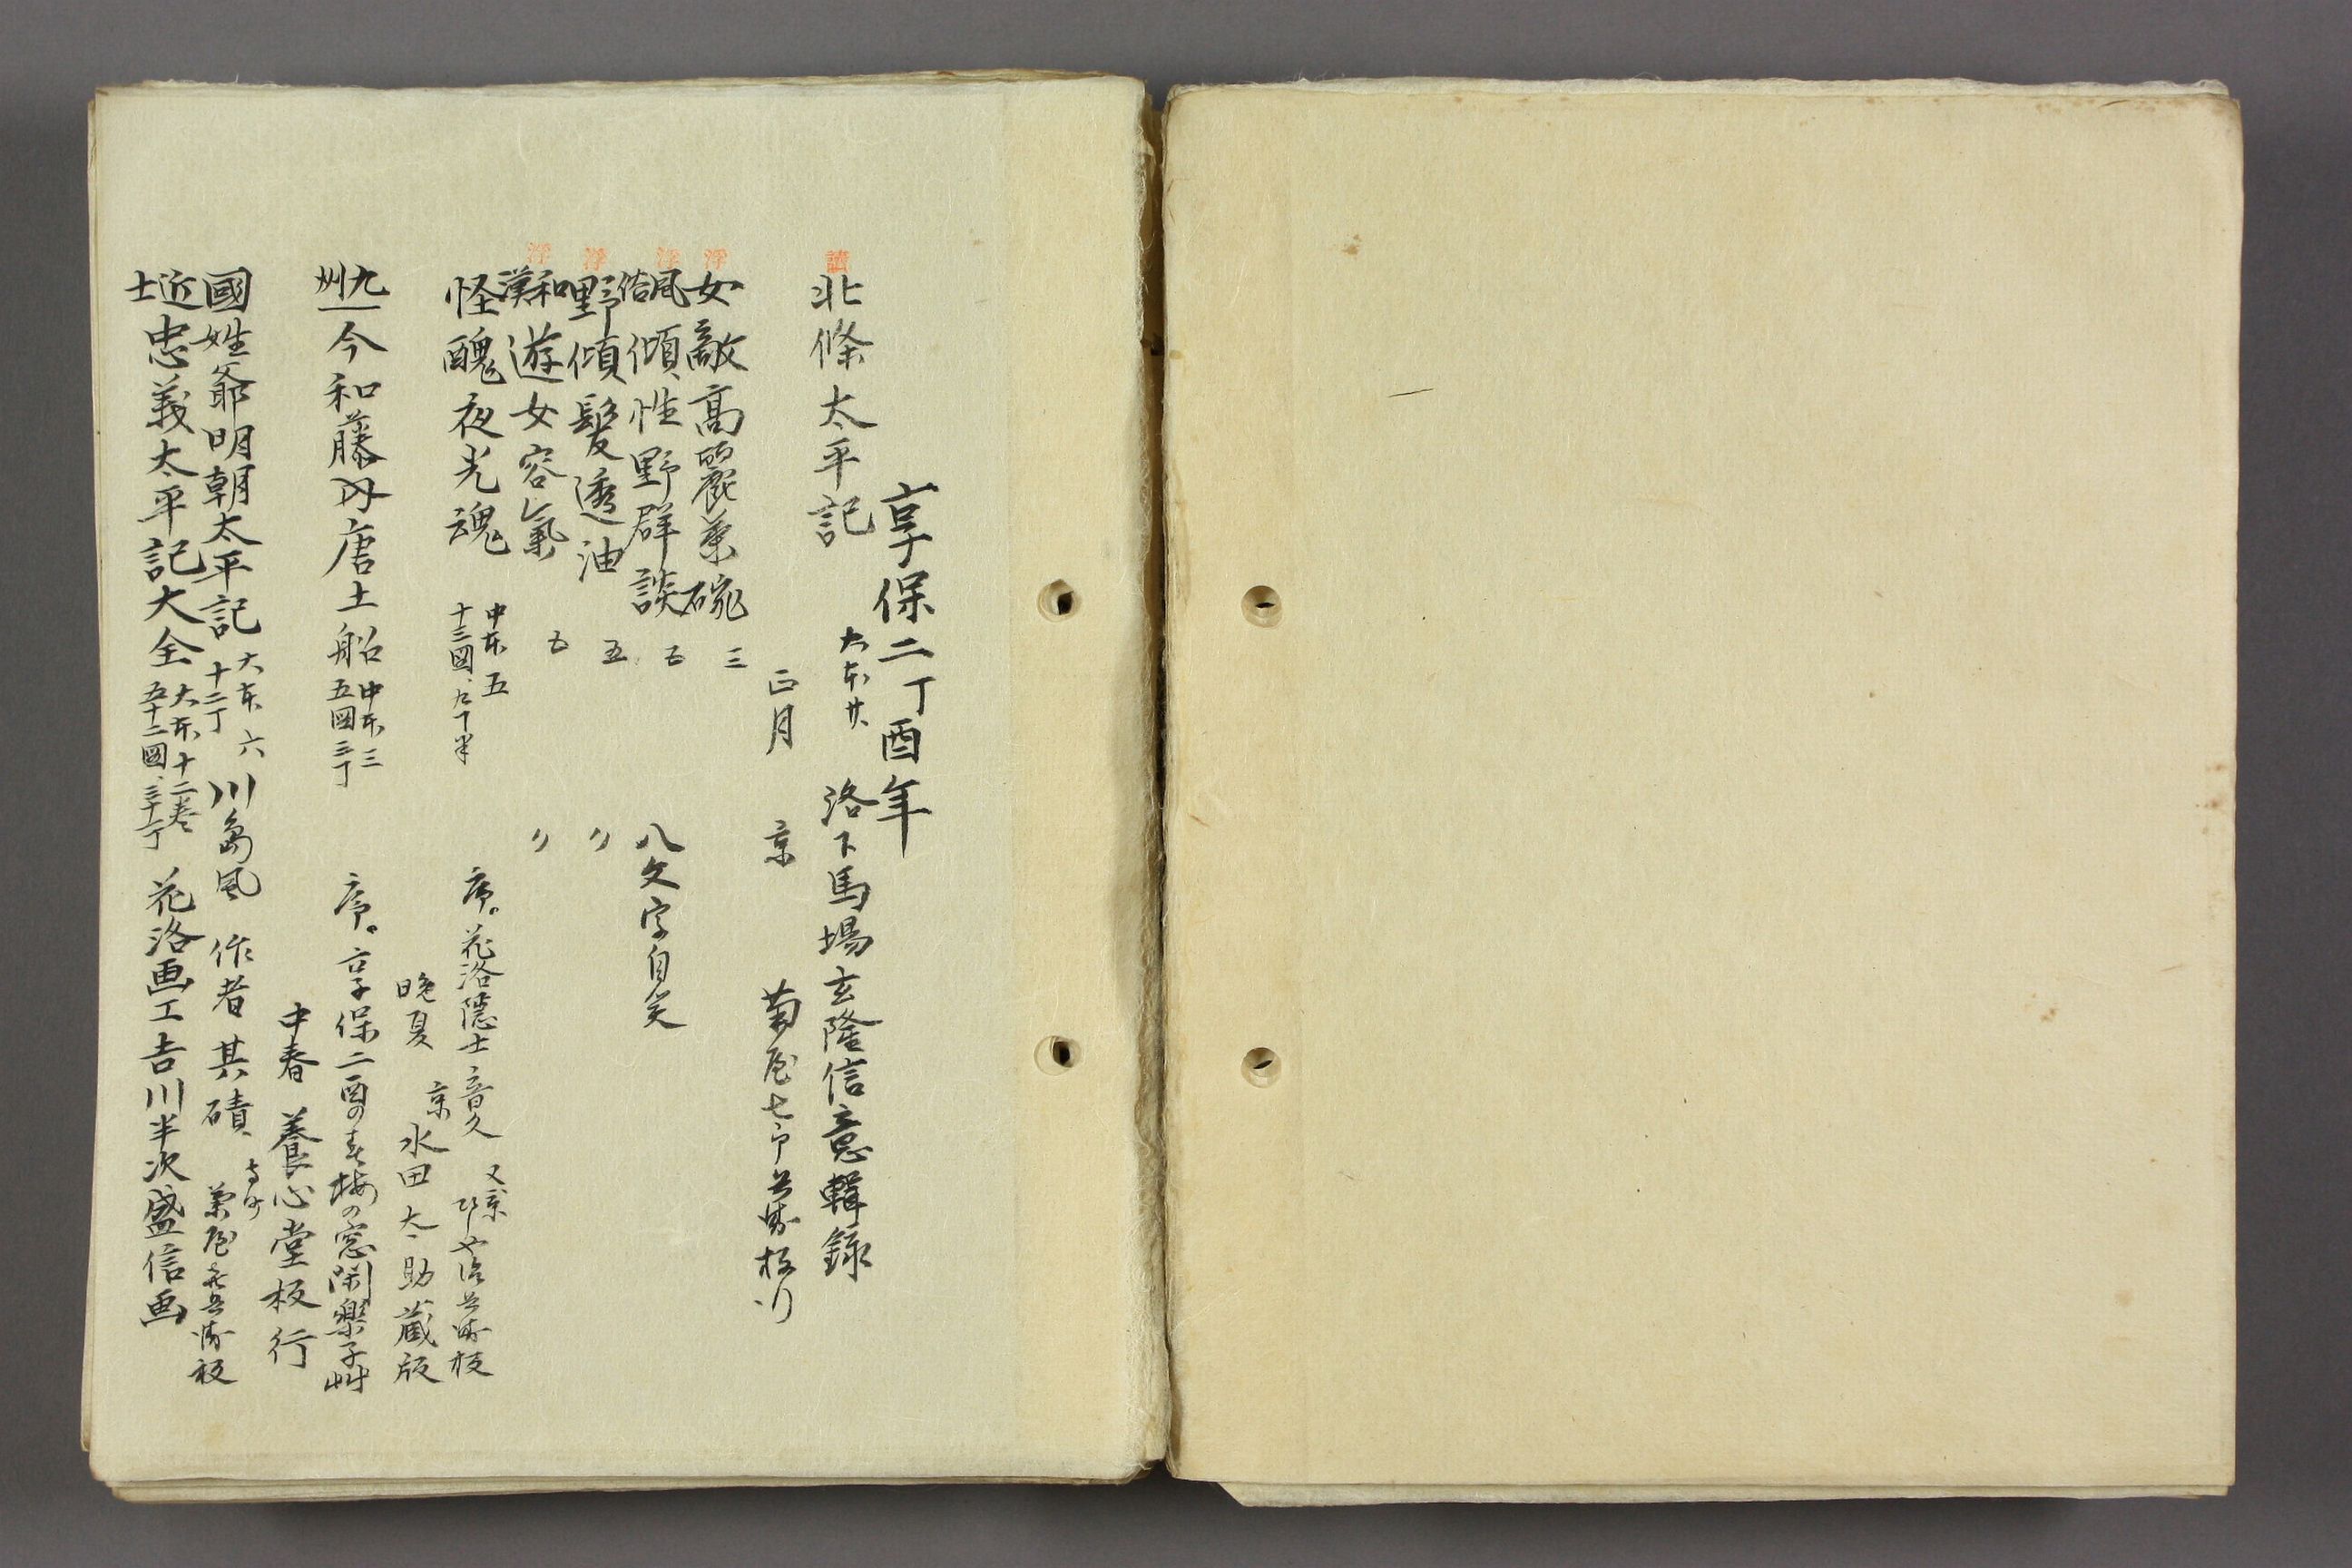 享保二丁酉年
讀
北條太平記 大本廿 洛下馬場玄隆信意輯録
正月 京 菊屋七郎兵衛板行
浮
女敵高麗茶碗 三
浮
風俗傾性野群談 五 八文字自笑
浮
野傾髪透油 五 〃
浮
和漢遊女容氣 五 〃
怪醜夜光魂 中本五 十三圖、九十半 序。花洛隠士音久
晩夏 京 水田太助蔵版
九州今和藤内唐土船 中本三 五圖三丁 序。享保二酉の春梅の窓閑樂子艸
中春 養心堂板行
國姓爺明朝太平記 大本六 十二丁 川島風 作者其磧
近士忠義太平記大全 大本十二巻 五十二圖、三十丁 花洛画工吉川半次盛信画